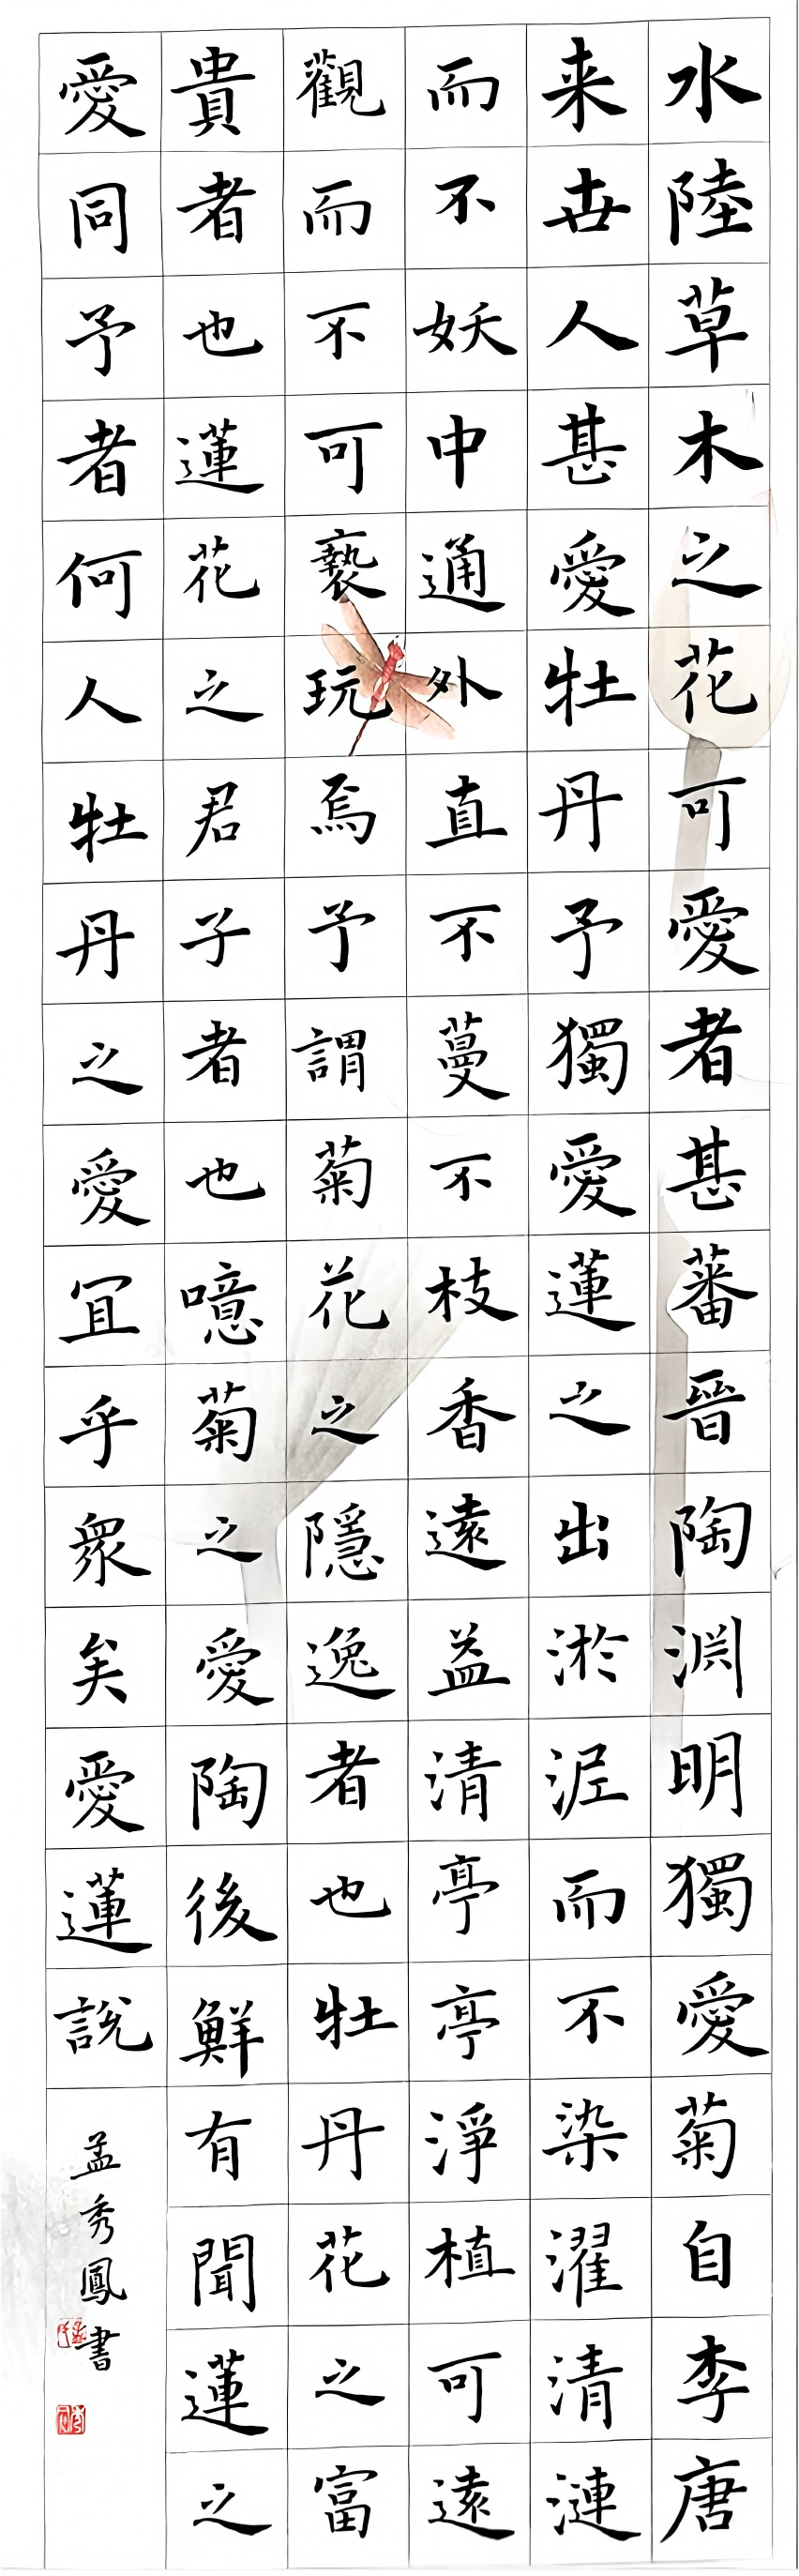 水陸草木之花可愛者甚蕃晉陶淵明獨愛菊自李唐
来世人甚愛牡丹予獨愛蓮之出淤泥而不染濯清漣
而不妖中通外直不蔓不枝香遠益清亭亭淨植可遠
觀而不可褻玩焉予謂菊花之隱逸者也牡丹花之富
貴者也蓮花之君子者也噫菊之愛陶後鮮有聞蓮之
愛同予者何人牡丹之愛宜乎眾矣愛蓮說
孟秀鳳書